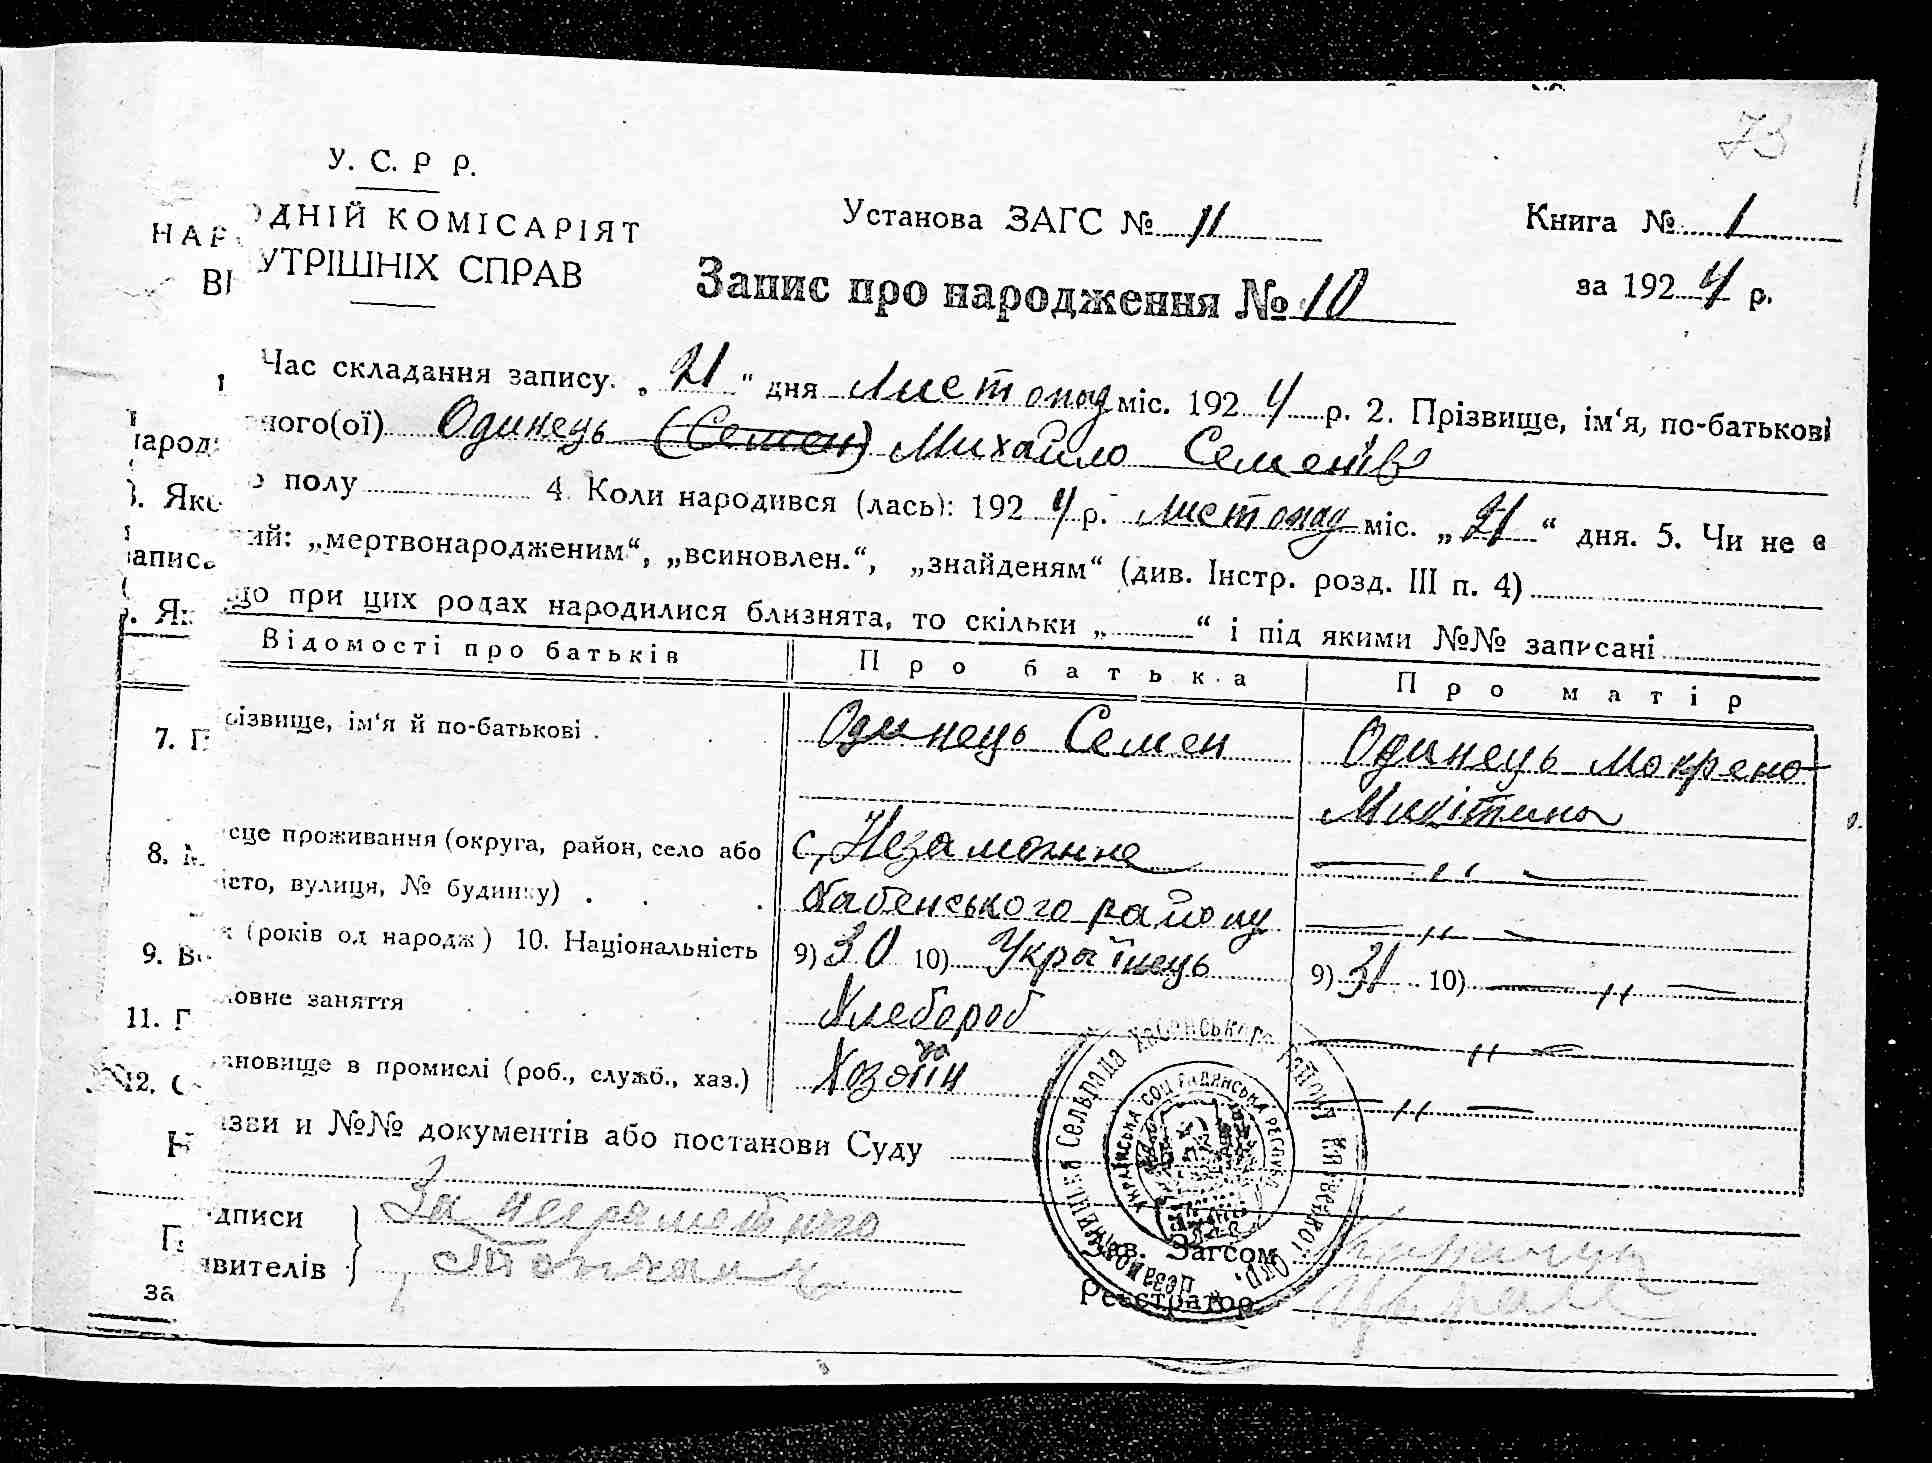 73
У. С. Р Р.
НАРОДНІЙ КОМІСАРІЯТ
УТРІШНІХ СПРАВ
Установа ЗАГС № 11
Книга № 1
Запис про народження № 10
за 1924 р.
1 Час складання запису. „21“ дня Листопад міс. 1924 р. 2. Прізвище, ім‘я, по-батькові
народ ного(ої) Одинець (Семен) Михайло Семенів
3. Яко о полу 4 Коли народився (лась): 1924 р. Листопад міс. „21“ дня. 5. Чи не є
записаний: „мертвонародженим“, „всиновлен.“, „знайденям“ (див. Інстр. розд. III п. 4)
6. Якщо при цих родах народилися близнята, то скільки „ “ і під якими №№ записані
Відомості про батьків Про батька Про матір
7. Прізвище, ім‘я й по-батькові . Одинець Семен Одинець Мокрена
Микітина
8. Місце проживання (округа, район, село або с, Незаможне — „ —
місто, вулиця, № будинку) . . . Хабенського району — „ —
9. Вік (років од народж) 10. Національність 9) 30 10) Українець 9) 31 10) — „ —
11. Головне заняття Хлебороб — „ —
12. Становище в промислі (роб., служб., хаз.) Хозяїн — „ —
Назви и №№ документів або постанови Суду
Підписи За неграмотного
заявителів
Зав. Загсом
Реєстратор
Сельрада Хабенського Району Київської Окр.
УКРАЇНСЬКА СОЦ РАДЯНСЬКА РЕСПУБ